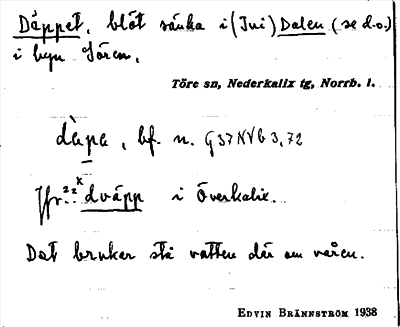 Däppet, blöt sänka i (Jni) Dalen (se d.o.)
i byn Sören.
Töre sn, Nederkalix tg, Norrb. l.
dàpa, bf. n. G37NVb3,72
Jfr dväpp i Överkalix.
Det brukar stå vatten där om våren.
EDVIN BRÄNNSTRÖM 1938